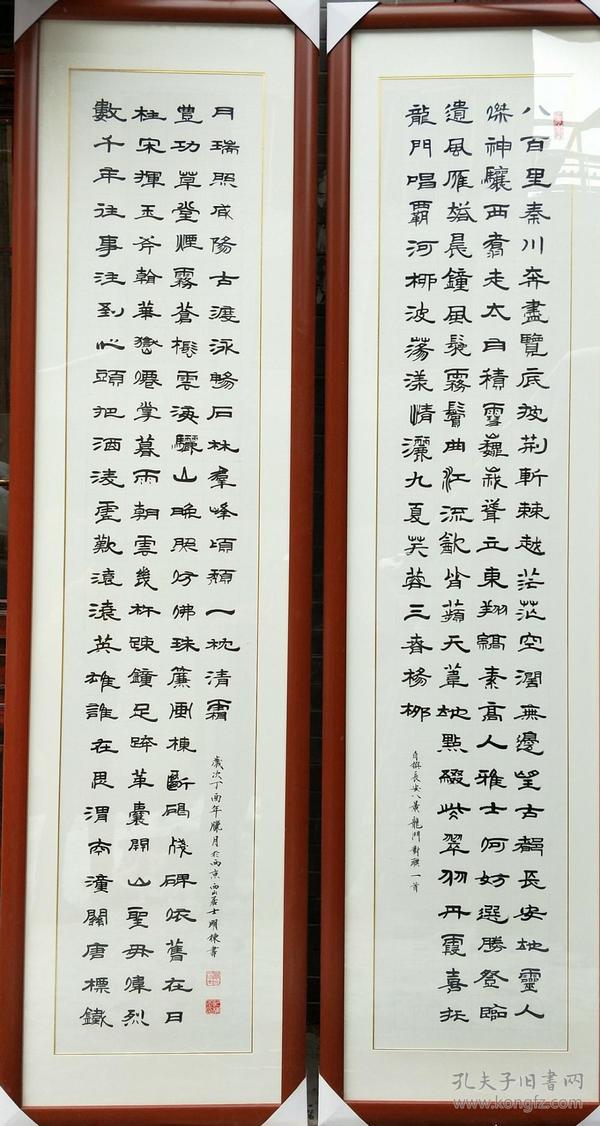 八百里秦川奔盡覽底披荊斬棘越茫茫空濶無邊望古都長安地靈人
傑神驤西翥走太白積雪巍峩聳立東翔縞素高人雅士何妨選勝登臨
遺風雁塔晨鐘風鬟霧鬢曲江流飲皆蘋天葦地點綴些翠羽丹霞喜
龍門唱霸河柳波蕩漾情灑九夏芙蓉三春楊柳
自撰長安八景龍門對聯一首
數千年往事注到心頭把酒凌虛歎滾滾英雄誰在思渭水潼關唐標鐵
柱宋揮玉斧翰華嶽僊掌暮雨朝雲幾杵疎鐘足踤革囊開山聖毋偉烈
豐功草堂煙霧蒼樹雲漢驪山晚照彷彿珠簾畫棟斷碣殘碑依舊在日
月瑞照咸陽古渡泳暢石林羣峰頃頹一枕清霜
歲次丁酉年臘月於西京西山居士明棟書
孔夫子旧书网
www.kongfz.com